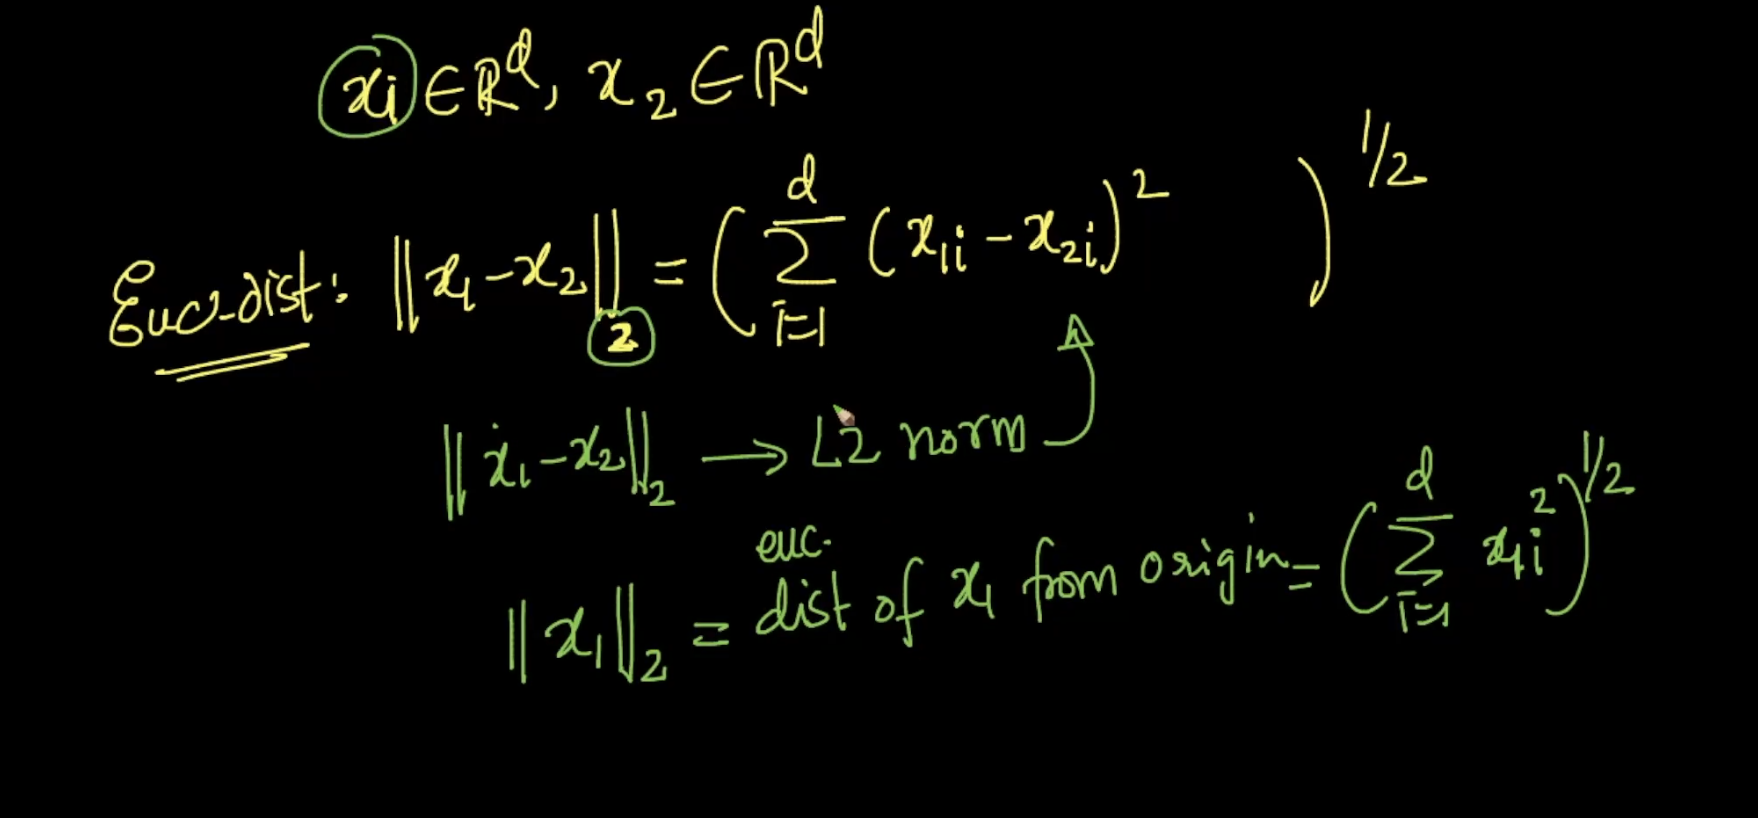 x₁ ∈ ℝᵈ, x₂ ∈ ℝᵈ
Euc-dist: ||x₁ - x₂||₂ = ( Σᵢ₌₁ᵈ (x₁ᵢ - x₂ᵢ)² )^1/2
||x₁ - x₂||₂ → L2 norm
euc.
||x₁||₂ = dist of x₁ from origin = ( Σᵢ₌₁ᵈ x₁ᵢ² )^1/2